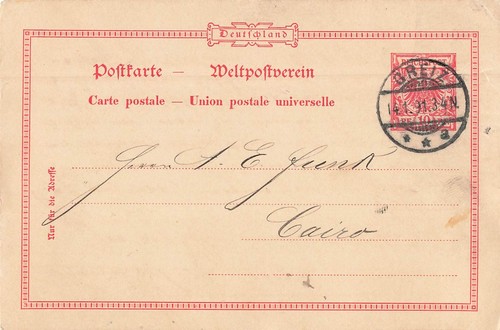 Deutschland
Postkarte — Weltpostverein
Carte postale — Union postale universelle
GREIZ
14.1.91.3-4N.
* * a
10
Herrn A. E. Funk
Cairo
Nur für die Adresse